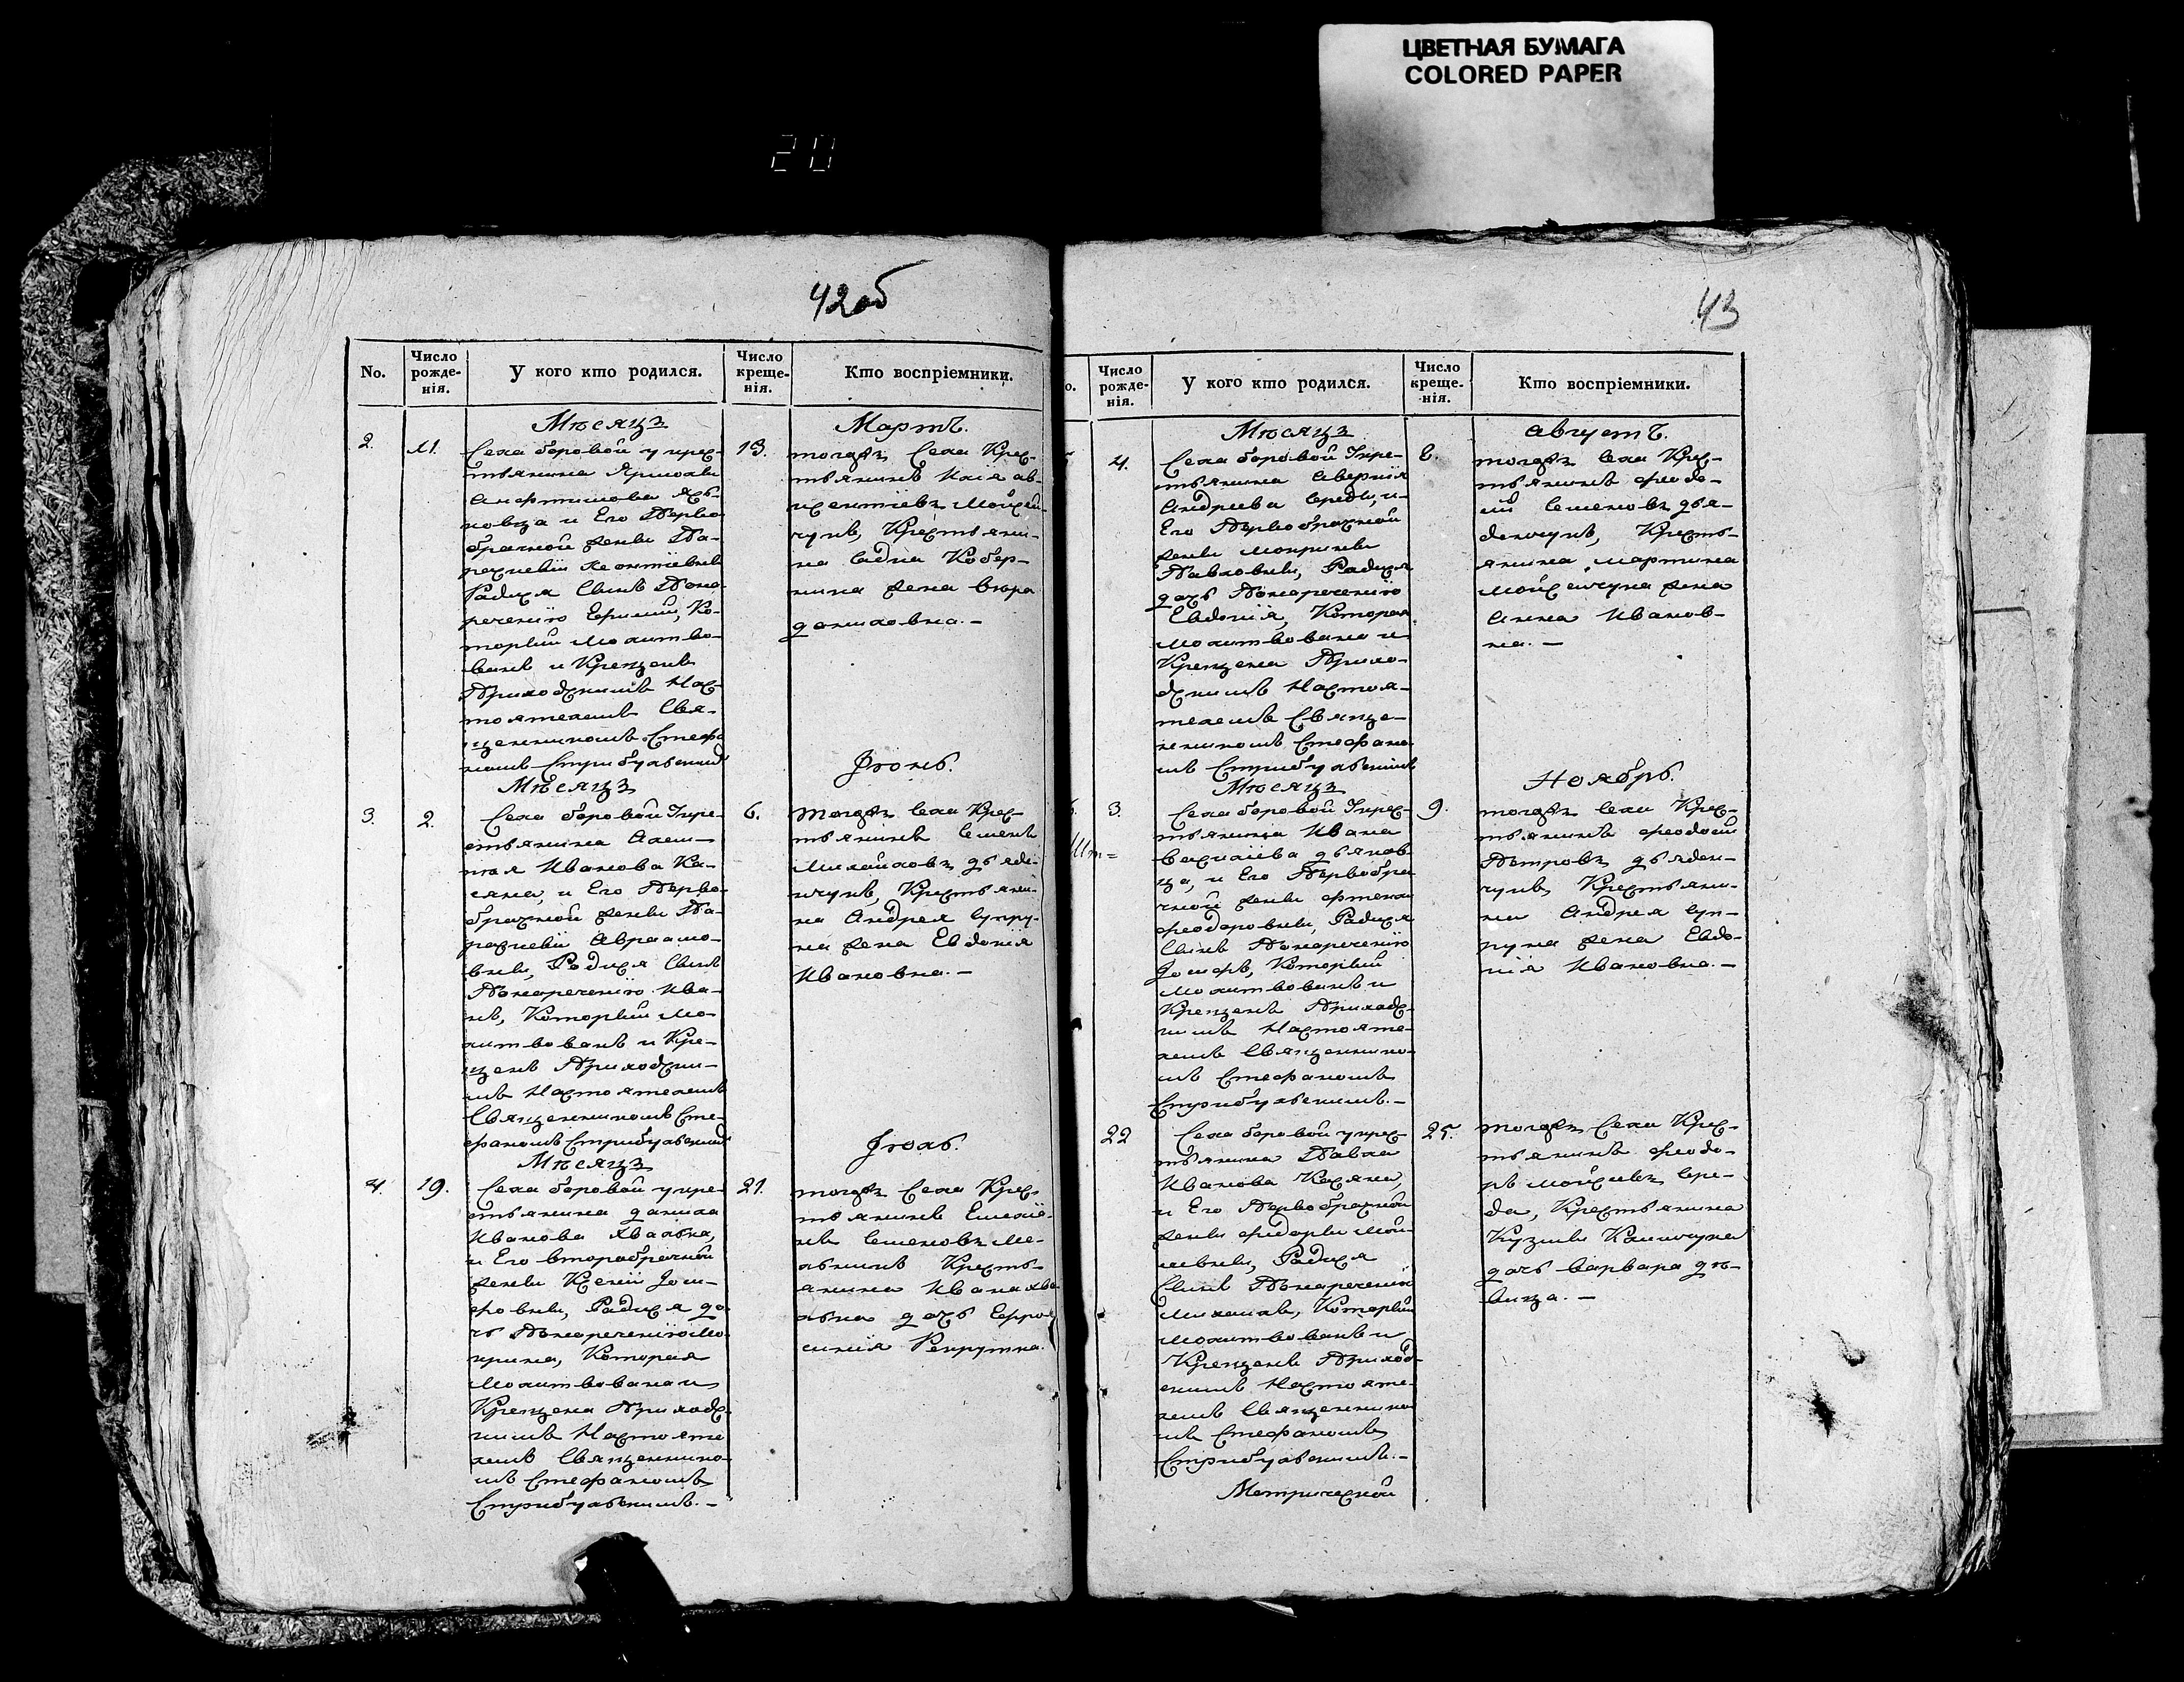 ЦВЕТНАЯ БУМАГА
COLORED PAPER
20
42об
No.
Число рожде-нія.
У кого кто родился.
Число креще-нія.
Кто воспріемники.
Мѣсяцъ
Мартъ.
2.
11.
Села боровой у крес-
тьянина
и Его Перво
брачной жены Па-
раскевіи Леонтіевны
Радился Сынъ Пона-
речению Ефимий, Ко-
торый Молитво-
ванъ и Крещенъ
Приходскимъ Нас-
тоятелемъ Свя-
щенникомъ Стефа
номъ Стрибульскимъ
13.
тогожъ Села Крес-
тьянинъ
чукъ, Крестьяни-
на
жена
даниловна. -
Мѣсяцъ
Іюнь.
3.
2.
Села боровой Укре-
стьянина Алек-
Иванова Ка-
сяна, и Его Перво-
брачной жены Па-
раскевіи Авраамо-
вны, Радился Сынъ
Понаречению Ива-
нъ, Который Мо-
литвованъ и Кре-
щенъ Приходски-
мъ Настоятелемъ
Священникомъ Сте-
фаномъ Стрибульскимъ
6.
тогожъ Села Крес-
тьянинъ Семенъ
Михайловъ дьяде-
нчукъ, Крестьяни-
на Андрея Супру-
на жена Евдокія
Ивановна. -
Мѣсяцъ
Іюль.
4.
19.
Села боровой укре-
стьянина данила
Иванова
и Его второбрачной
жены Ксеніи Іоси-
фовны, Радился до
чь Понаречению Мо-
крина, Которая
Молитвована и
Крещена Приходс-
кимъ Настояте
лемъ Священнико-
мъ Стефаномъ
Стрибульскимъ. -
21.
тогожъ Села Крес-
тьянинъ Емелія-
нъ Семеновъ Ме-
льникъ Кресть-
янина Ивана
дочь Ефро
синія Рекрутка.
43
о.
Число рожде-нія.
У кого кто родился.
Число креще-нія.
Кто воспріемники.
Мѣсяцъ
Августъ.
4.
Села боровой Укре-
стьянина Аверкія
Андреева Середы, и
Его Первобрачной
жены Мокрины
Павловны, Радился
дочь Понаречению
Евдокія, Которая
Молитвована и
Крещена Прихо-
дскимъ Настоя-
телемъ Священ-
никомъ Стефано-
мъ Стрибульскимъ
8.
тогожъ Села Крес-
тьянинъ Феодо-
сій Семеновъ дья-
денчукъ, Кресть-
янина Мартина
Мойсейчука жена
Анна Иванов-
на. -
Мѣсяцъ
Ноябрь.
3.
Села боровой Укрес-
тьянина Ивана
Василіева дьяков-
ца, и Его Первобра
чной жены
Феодоровны, Радился
Сынъ Понаречению
Іосифъ, Который
Молитвованъ и
Крещенъ Приходс-
кимъ Настояте-
лемъ Священнико-
мъ Стефаномъ
Стрибульскимъ. -
9.
тогожъ Села Крес-
тьянинъ Феодосій
Петровъ дьяден-
чукъ, Крестьяни-
на Андрея Суп-
руна жена Евдо-
кія Ивановна. -
22
Села боровой укрес-
тьянина Павла
Иванова Касяна,
и Его Первобрачной
жены Федоры Мой-
сіевны, Радился
Сынъ Понаречению
Михаилъ, Который
Молитвованъ и
Крещенъ Приход-
скимъ Настояте-
лемъ Священнико
мъ Стефаномъ
Стрибульскимъ. -
25.
тогожъ Села Крес-
тьянинъ Феодо-
ръ Мойсіевъ Сере-
да, Крестьянина
Кузмы
дочь Варвара дѣ-
вица. -
Метрической